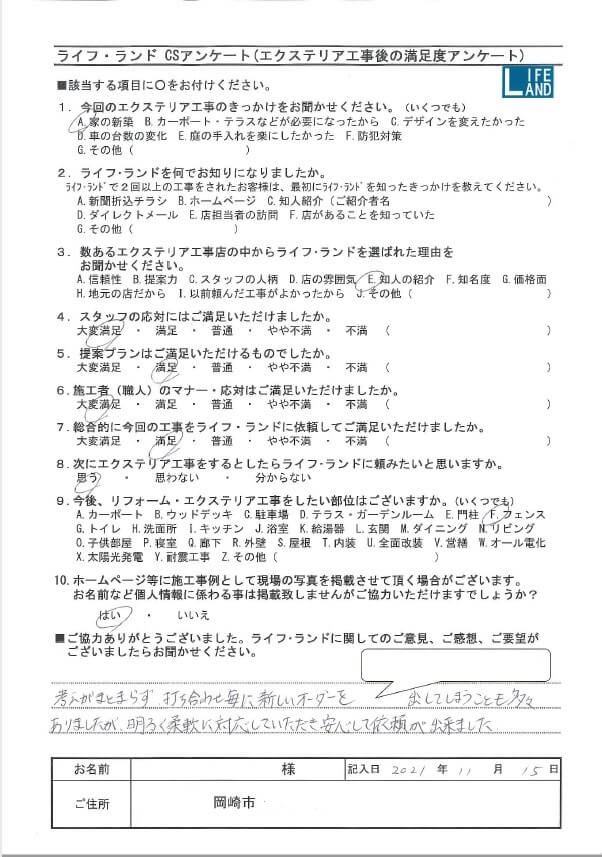 ライフ・ランド CSアンケート(エクステリア工事後の満足度アンケート)
■該当する項目に〇をお付けください。
LIFE LAND
1．今回のエクステリア工事のきっかけをお聞かせください。（いくつでも）
A.家の新築 B.カーポート・テラスなどが必要になったから C.デザインを変えたかった
D.車の台数の変化 E.庭の手入れを楽にしたかった F.防犯対策
G.その他（ ）
2．ライフ・ランドを何でお知りになりましたか。
ﾗｲﾌ･ﾗﾝﾄﾞで２回以上の工事をされたお客様は、最初にﾗｲﾌ･ﾗﾝﾄﾞを知ったきっかけを教えてください。
A.新聞折込チラシ B.ホームページ C.知人紹介（ご紹介者名 ）
D.ダイレクトメール E.店担当者の訪問 F.店があることを知っていた
G.その他（ ）
3．数あるエクステリア工事店の中からライフ・ランドを選ばれた理由を
お聞かせください。
A.信頼性 B.提案力 C.スタッフの人柄 D.店の雰囲気 E.知人の紹介 F.知名度 G.価格面
H.地元の店だから I.以前頼んだ工事がよかったから J.その他（ ）
4．スタッフの応対にはご満足いただけましたか。
大変満足 ・ 満足 ・ 普通 ・ やや不満 ・ 不満 （ ）
5．提案プランはご満足いただけるものでしたか。
大変満足 ・ 満足 ・ 普通 ・ やや不満 ・ 不満 （ ）
6．施工者（職人）のマナー・応対はご満足いただけましたか。
大変満足 ・ 満足 ・ 普通 ・ やや不満 ・ 不満 （ ）
7．総合的に今回の工事をライフ・ランドに依頼してご満足いただけましたか。
大変満足 ・ 満足 ・ 普通 ・ やや不満 ・ 不満 （ ）
8．次にエクステリア工事をするとしたらライフ・ランドに頼みたいと思いますか。
思う ・ 思わない ・ 分からない
9．今後、リフォーム・エクステリア工事をしたい部位はございますか。（いくつでも）
A.カーポート B.ウッドデッキ C.駐車場 D.テラス・ガーデンルーム E.門柱 F.フェンス
G.トイレ H.洗面所 I.キッチン J.浴室 K.給湯器 L.玄関 M.ダイニング N.リビング
O.子供部屋 P.寝室 Q.廊下 R.外壁 S.屋根 T.内装 U.全面改装 V.営繕 W.オール電化
X.太陽光発電 Y.耐震工事 Z.その他（ ）
10．ホームページ等に施工事例として現場の写真を掲載させて頂く場合がございます。
お名前など個人情報に係わる事は掲載致しませんがご協力いただけますでしょうか？
はい ・ いいえ
■ご協力ありがとうございました。ライフ・ランドに関してのご意見、ご感想、ご要望が
ございましたらお聞かせください。
考えがまとまらず、打ち合わせ毎に新しいオーダーを 出してしまうことも多々
ありましたが、明るく柔軟に対応していただき安心して依頼が出来ました
お名前 様 記入日 2021 年 11 月 15 日
ご住所 岡崎市